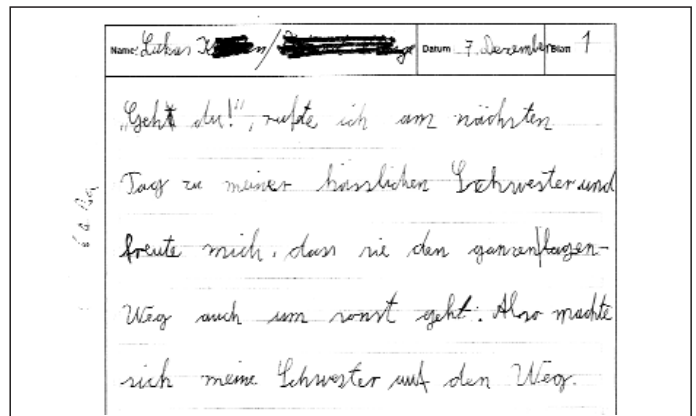 Name: Lukas K / Datum 7. Dezember Blatt 1
„Geht du!", rufte ich am nächsten
Tag zu meiner hässlichen Schwester und
freute mich, dass sie den ganzen
Weg auch um sonst geht. Also machte
sich meine Schwester auf den Weg.